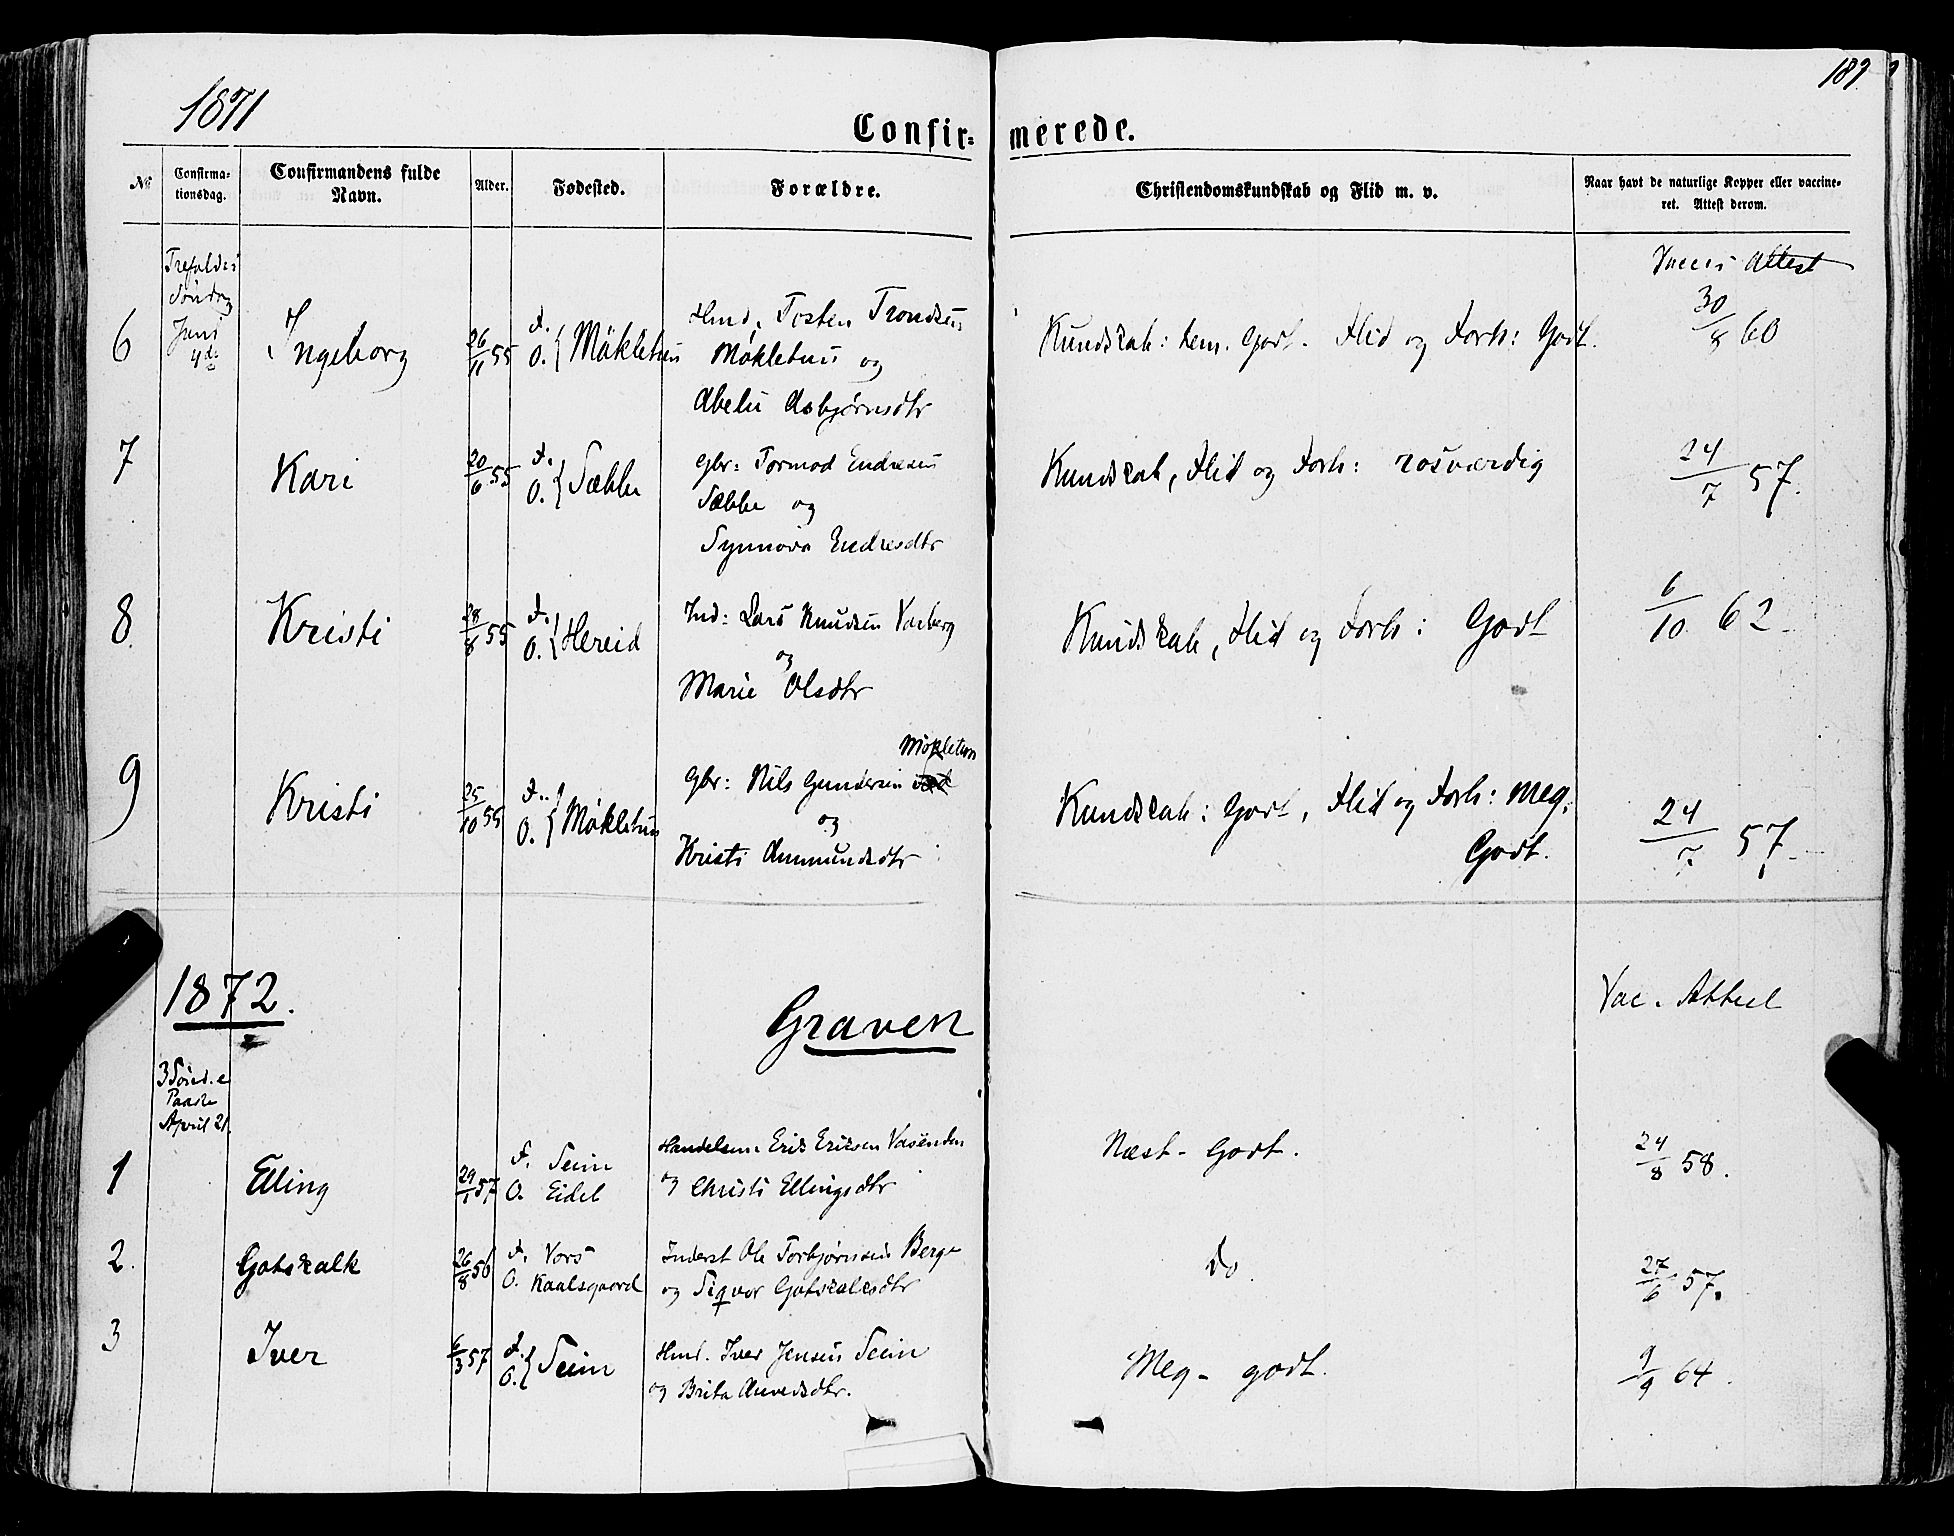 1871
189.
Confir= merede.
No
Confirma-
tionsdag.
Confirmandens fulde
Navn.
Alder.
Fødested.
Forældre.
Christendomskundskab og Flid m. v.
Naar havt de naturlige Kopper eller vaccine-
ret. Attest derom.
Trefoldes
Søndag
Juni
4de
Vaccs Attest
6 Ingeborg 26/11 55 F. O. { Møkletun
Hmd. Tosten Trondsen
Møkletun og
Abelu Asbjørnsdtr
Kundskab: tem. Godt. Flid og Forh: Godt. 30/8 60
7 Kari 20/6 55 F. O. { Sæbbe
Gbr: Tormod Endresen
Sæbbe og
Synnøva Endresdtr
Kundskab, Flid og Forh: rosværdig 24/7 57.
8. Kristi 28/8 55 F. O. { Hereid
Ind: Lars Knudsen Varberg
og
Marie Olsdtr
Kundskab, Flid og Forh: Godt 6/10 62
9 Kristi 25/10 55 F. O. { Møkletun
Møkletun
Gbr: Nils Gundersen
og
Kristi Ammundsdtr
Kundskab: Godt, Flid og Forh: Meg.
Godt.
24/7 57.
1872.
Graven
Vac. Attest
3 Sønd. e
Paaske
April 21.
1 Elling 29/1 57 F. Seim
O. Eidet
Handelsm. Erik Eriksen Vasenden
og Christi Ellingsdtr
Næst- Godt. 24/8 58.
2. Gotskalk 26/8 56 F. Vors
O. Kaalsgaard
Inderst Ole Torbjørnsen Berge
og Sigvor Gotskalksdtr
Do 27/6 57.
3 Iver 6/3 57 F. O. { Seim
Hmd. Iver Jensen Seim
og Brita Anvedsdtr.
Meg- godt. 9/9 64.